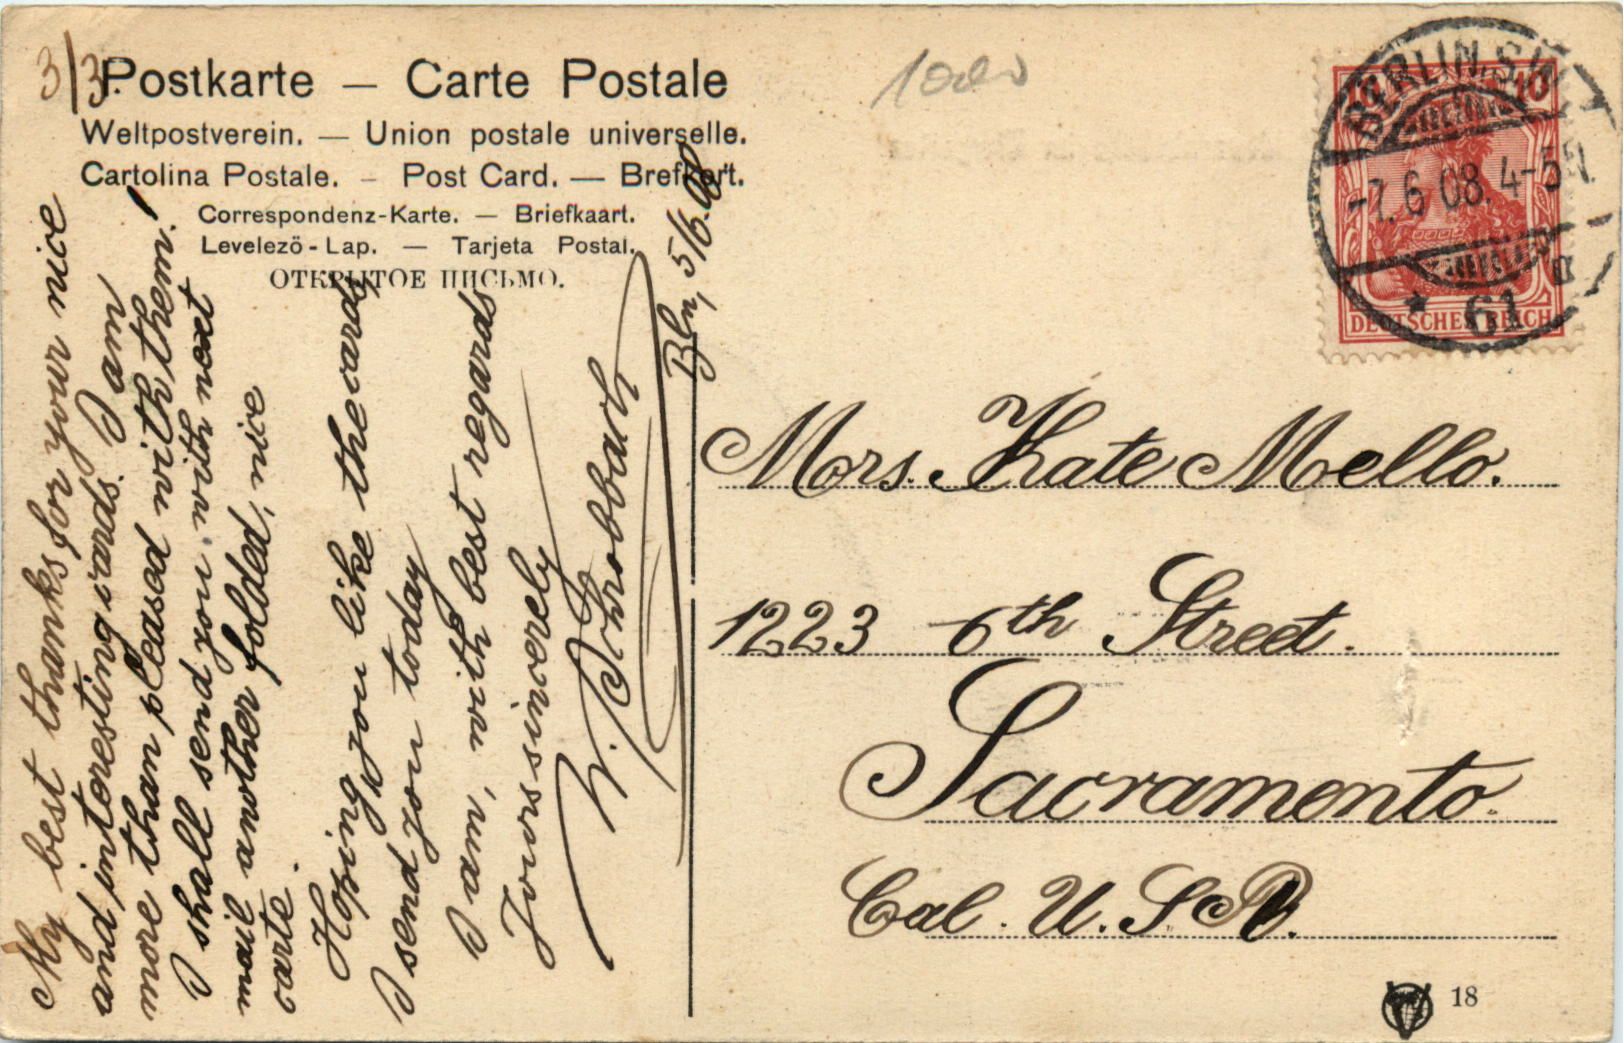 3/3.
Postkarte — Carte Postale
Weltpostverein. — Union postale universelle.
Cartolina Postale. — Post Card. — Brefkort.
Correspondenz-Karte. — Briefkaart.
Levelező-Lap. — Tarjeta Postal.
ОТКРЫТОЕ ПИСЬМО.
Bln, 5/6.08
My best thanks for your nice
and interesting cards. I am
more than pleased with them!
I shall send you with next
mail another folded, nice
carte.
Hoping you like the cards
I send you today
I am, with best regards
Yours sincerely
W. Schrobbach
BERLIN. S.W.
-7.6.08. 4-5N.
* 61 a
10
DEUTSCHES REICH
Mrs. Kate Mello.
1223 6th Street.
Sacramento.
Cal. U.S.A.
18